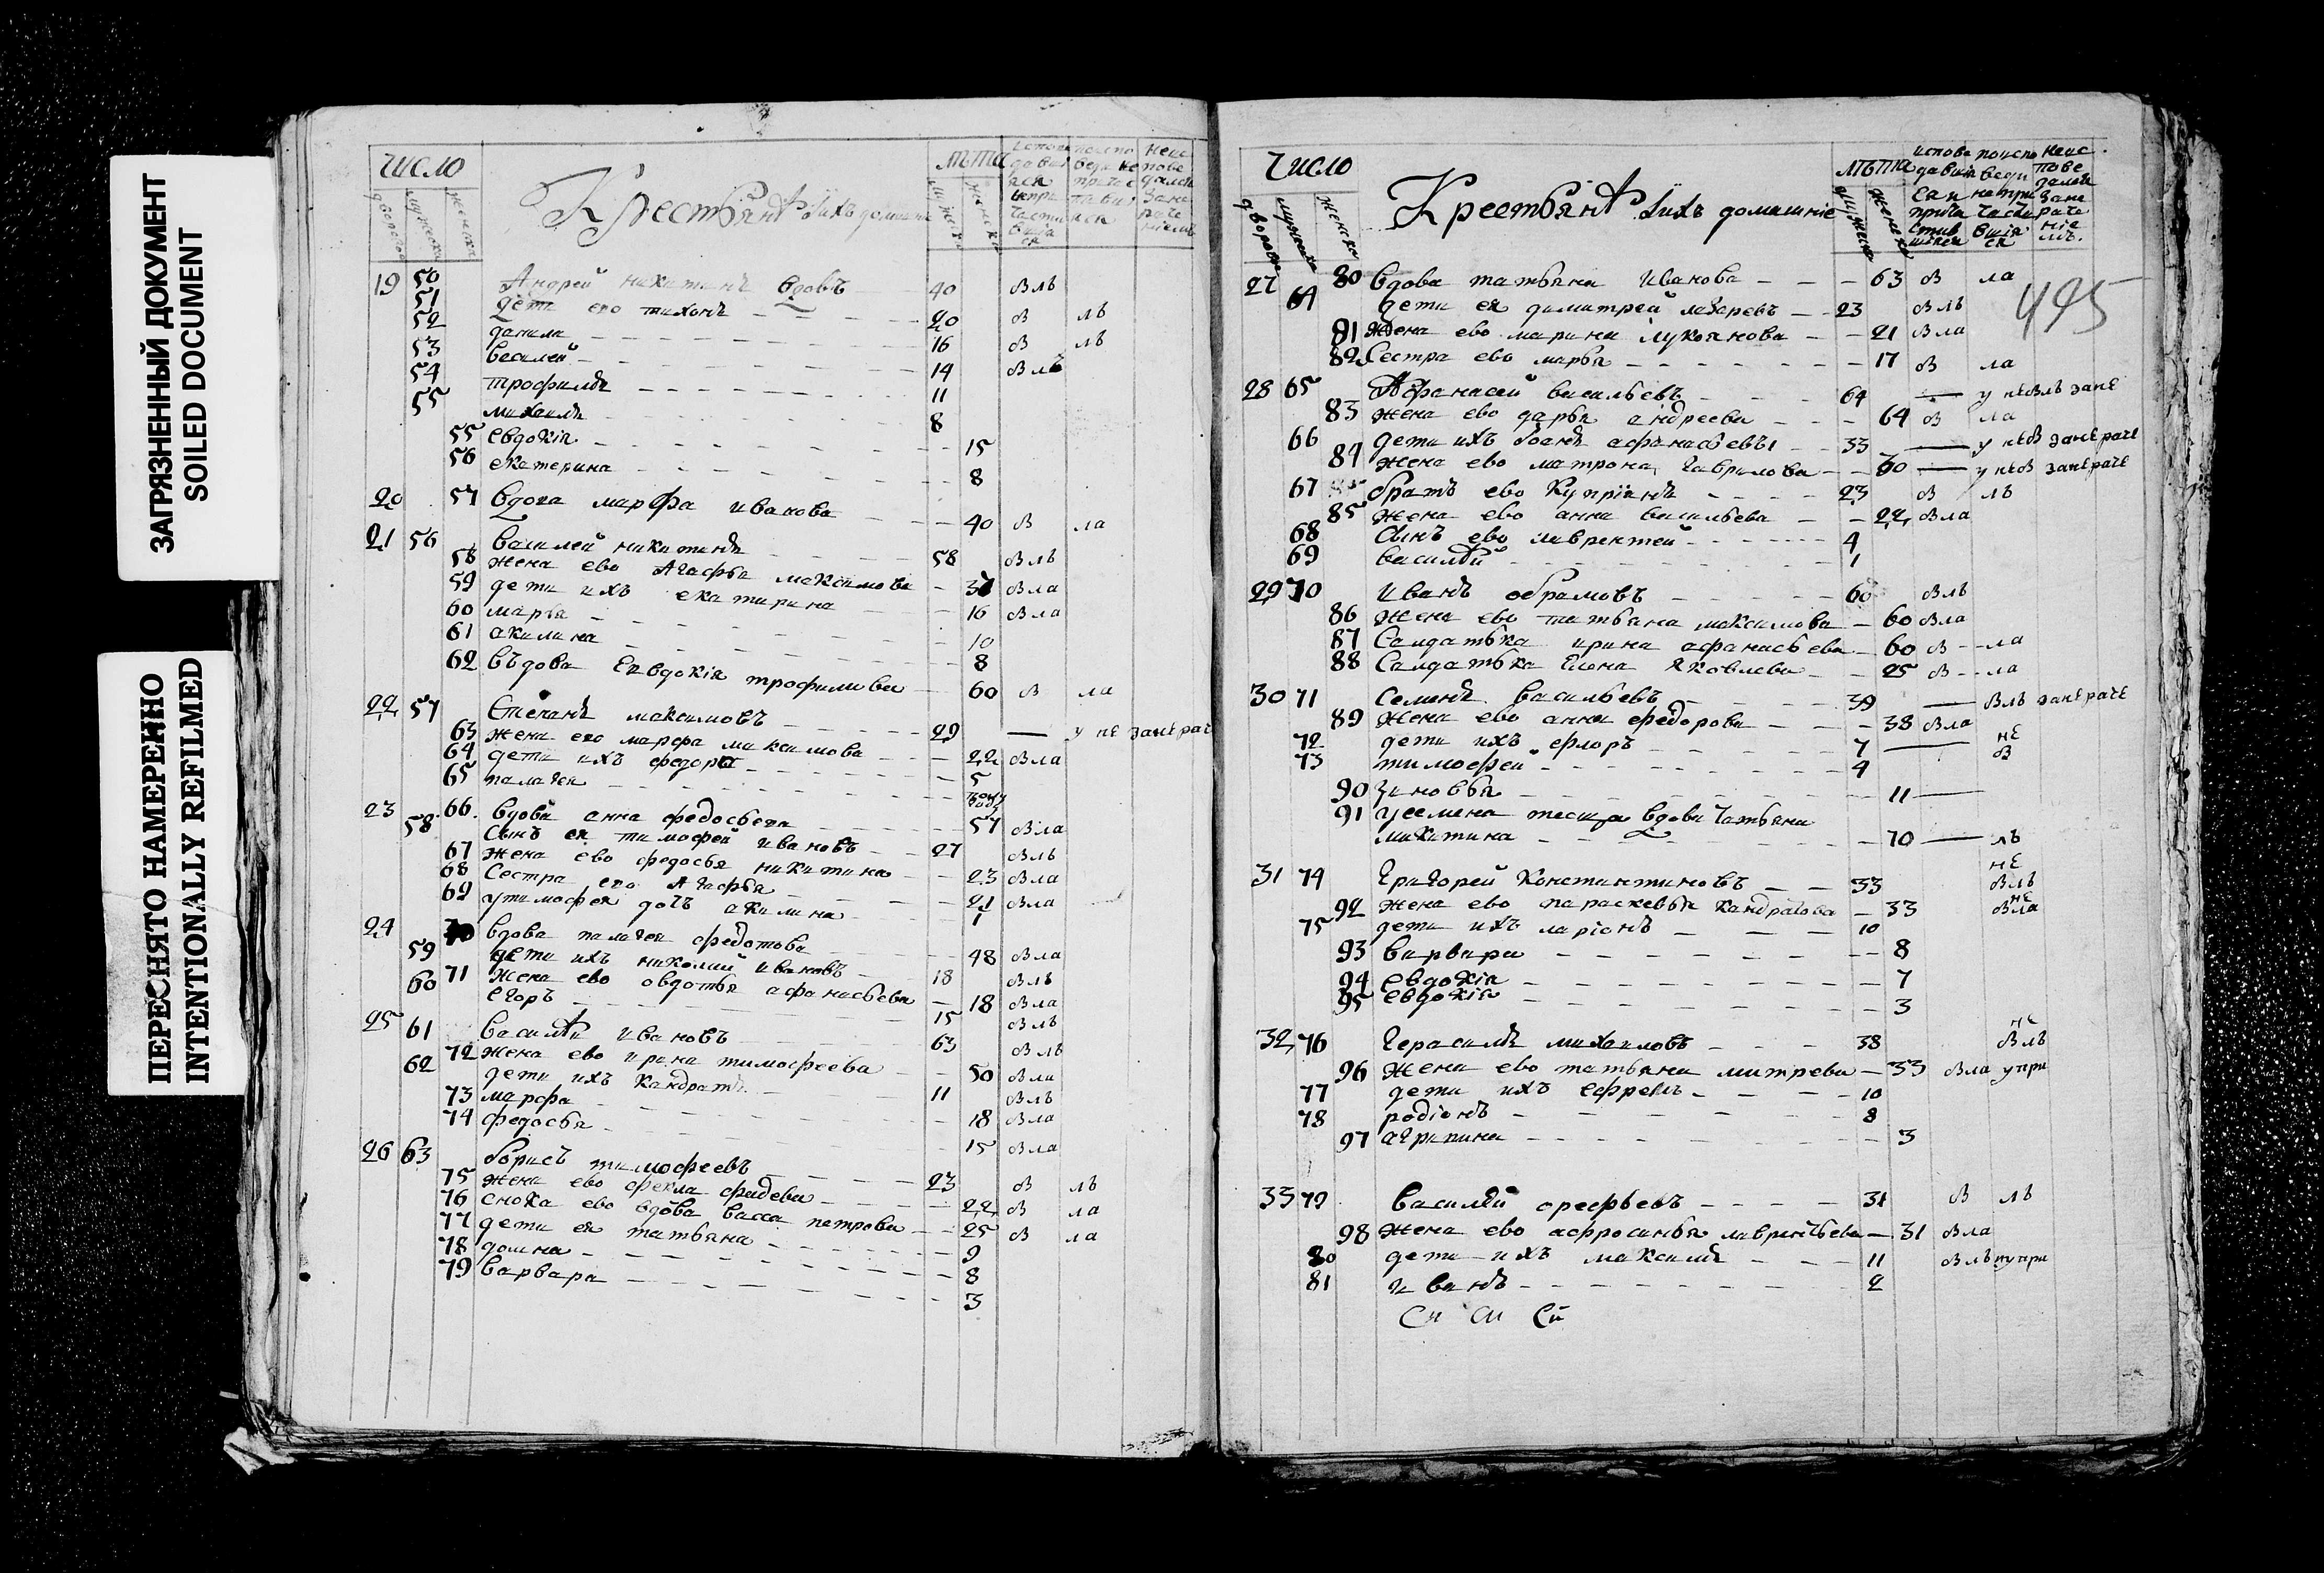 ЗАГРЯЗНЕННЫЙ ДОКУМЕНТ
SOILED DOCUMENT
ПЕРЕСНЯТО НАМЕРЕННО
INTENTIONALLY REFILMED
число
Крестьянѣ ихъ домашни
лѣта
19 50 Андрей никитинъ вдовъ 40 в лъ
51 дети его тихонъ 20 в лъ
52 данила 16 в лъ
53 василей 14 в лъ
54 трофимъ 11
55 михаилъ 8
55 евдокія 15
56 екатерина 8
20 57 вдова марфа иванова 40 в ла
21 56 василей никитинъ 58 в лъ
58 жена ево агафья максимова 37 в ла
59 дети ихъ екатирина 16 в ла
60 марья 10
61 акилина 8
62 въдова евдокія трофимова 60 в ла
22 57 Степанъ максимовъ 29 у не занерач
63 жена его марфа максимова 22 в ла
64 дети ихъ федора 5
65 палагея
23 66 вдова анна федосеева 57 в ла
58 Сынъ ея тимофей ивановъ 27 в лъ
67 жена ево федосья никитина 23 в ла
68 Сестра его агафья 21 в ла
69 утимофея дочъ акилина 1
24 70 вдова палагея федотова 48 в ла
59 дети ихъ николай ивановъ 18 в лъ
71 жена ево овдотья афонасьева 18 в ла
60 егоръ 15 в лъ
25 61 василѣй ивановъ 63 в лъ
72 жена ево ирина тимофеева 50 в ла
62 дети ихъ кандратъ 11 в лъ
73 марфа 18 в ла
74 федосья 15 в ла
26 63 борисъ тимофеевъ 23 в лъ
75 жена ево фекла фадева 22 в ла
76 сноха ево вдова васса петрова 25 в ла
77 дети ея татьяна 9
78 домна 8
79 варвара 3
число
Крестьянѣ ихъ домашніе
лѣта
495
27 80 вдова татьяна иванова 63 в ла
64 дети ея димитрей лазаревъ 23 в лъ
81 жена ево марина лукоянова 21 в ла
82 Сестра ево марья 17 в ла
28 65 Афанасей васильевъ 64 у не в лъ зане
83 жена ево дарья андреева 64 в ла
66 дети ихъ афанасьевы 33 у не в занераче
84 жена ево матрона гаврилова 30 у не в занераче
67 братъ ево Купріянъ 23 в лъ
85 жена ево анна васильева 22 в ла
68 Сынъ ево лаврентей 4
69 василѣй 1
29 70 иванъ обрамовъ 60 в лъ
86 жена ево татьяна максимова 60 в ла
87 Салдатька ирина афанасьева 60 в ла
88 Салдатька елена яковлева 25 в ла
30 71 Семенъ васильевъ 39 в лъ занераче
89 жена ево анна федорова 38 в ла
72 дети ихъ флоръ 7 не в
73 тимофей 4
90 зиновья 11
91 усемена теща вдова татьяна
никитина 70 лъ
31 74 григорей константиновъ 33 не в лъ
92 жена ево параскевья кандратова 33 не в ла
75 дети ихъ ларіонъ 10
93 варвара 8
94 евдокія 7
95 евдокія 3
32 76 герасимъ михаиловъ 38 не в лъ
96 жена ево татьяна митрева 33 в ла упри
77 дети ихъ ефремъ 10
78 родіонъ 8
97 агрипина 3
33 79 василѣй орефьевъ 31 в лъ
98 жена ево афросинья лаврентьева 31 в ла
80 дети ихъ максимъ 11 в лъ
81 иванъ 2